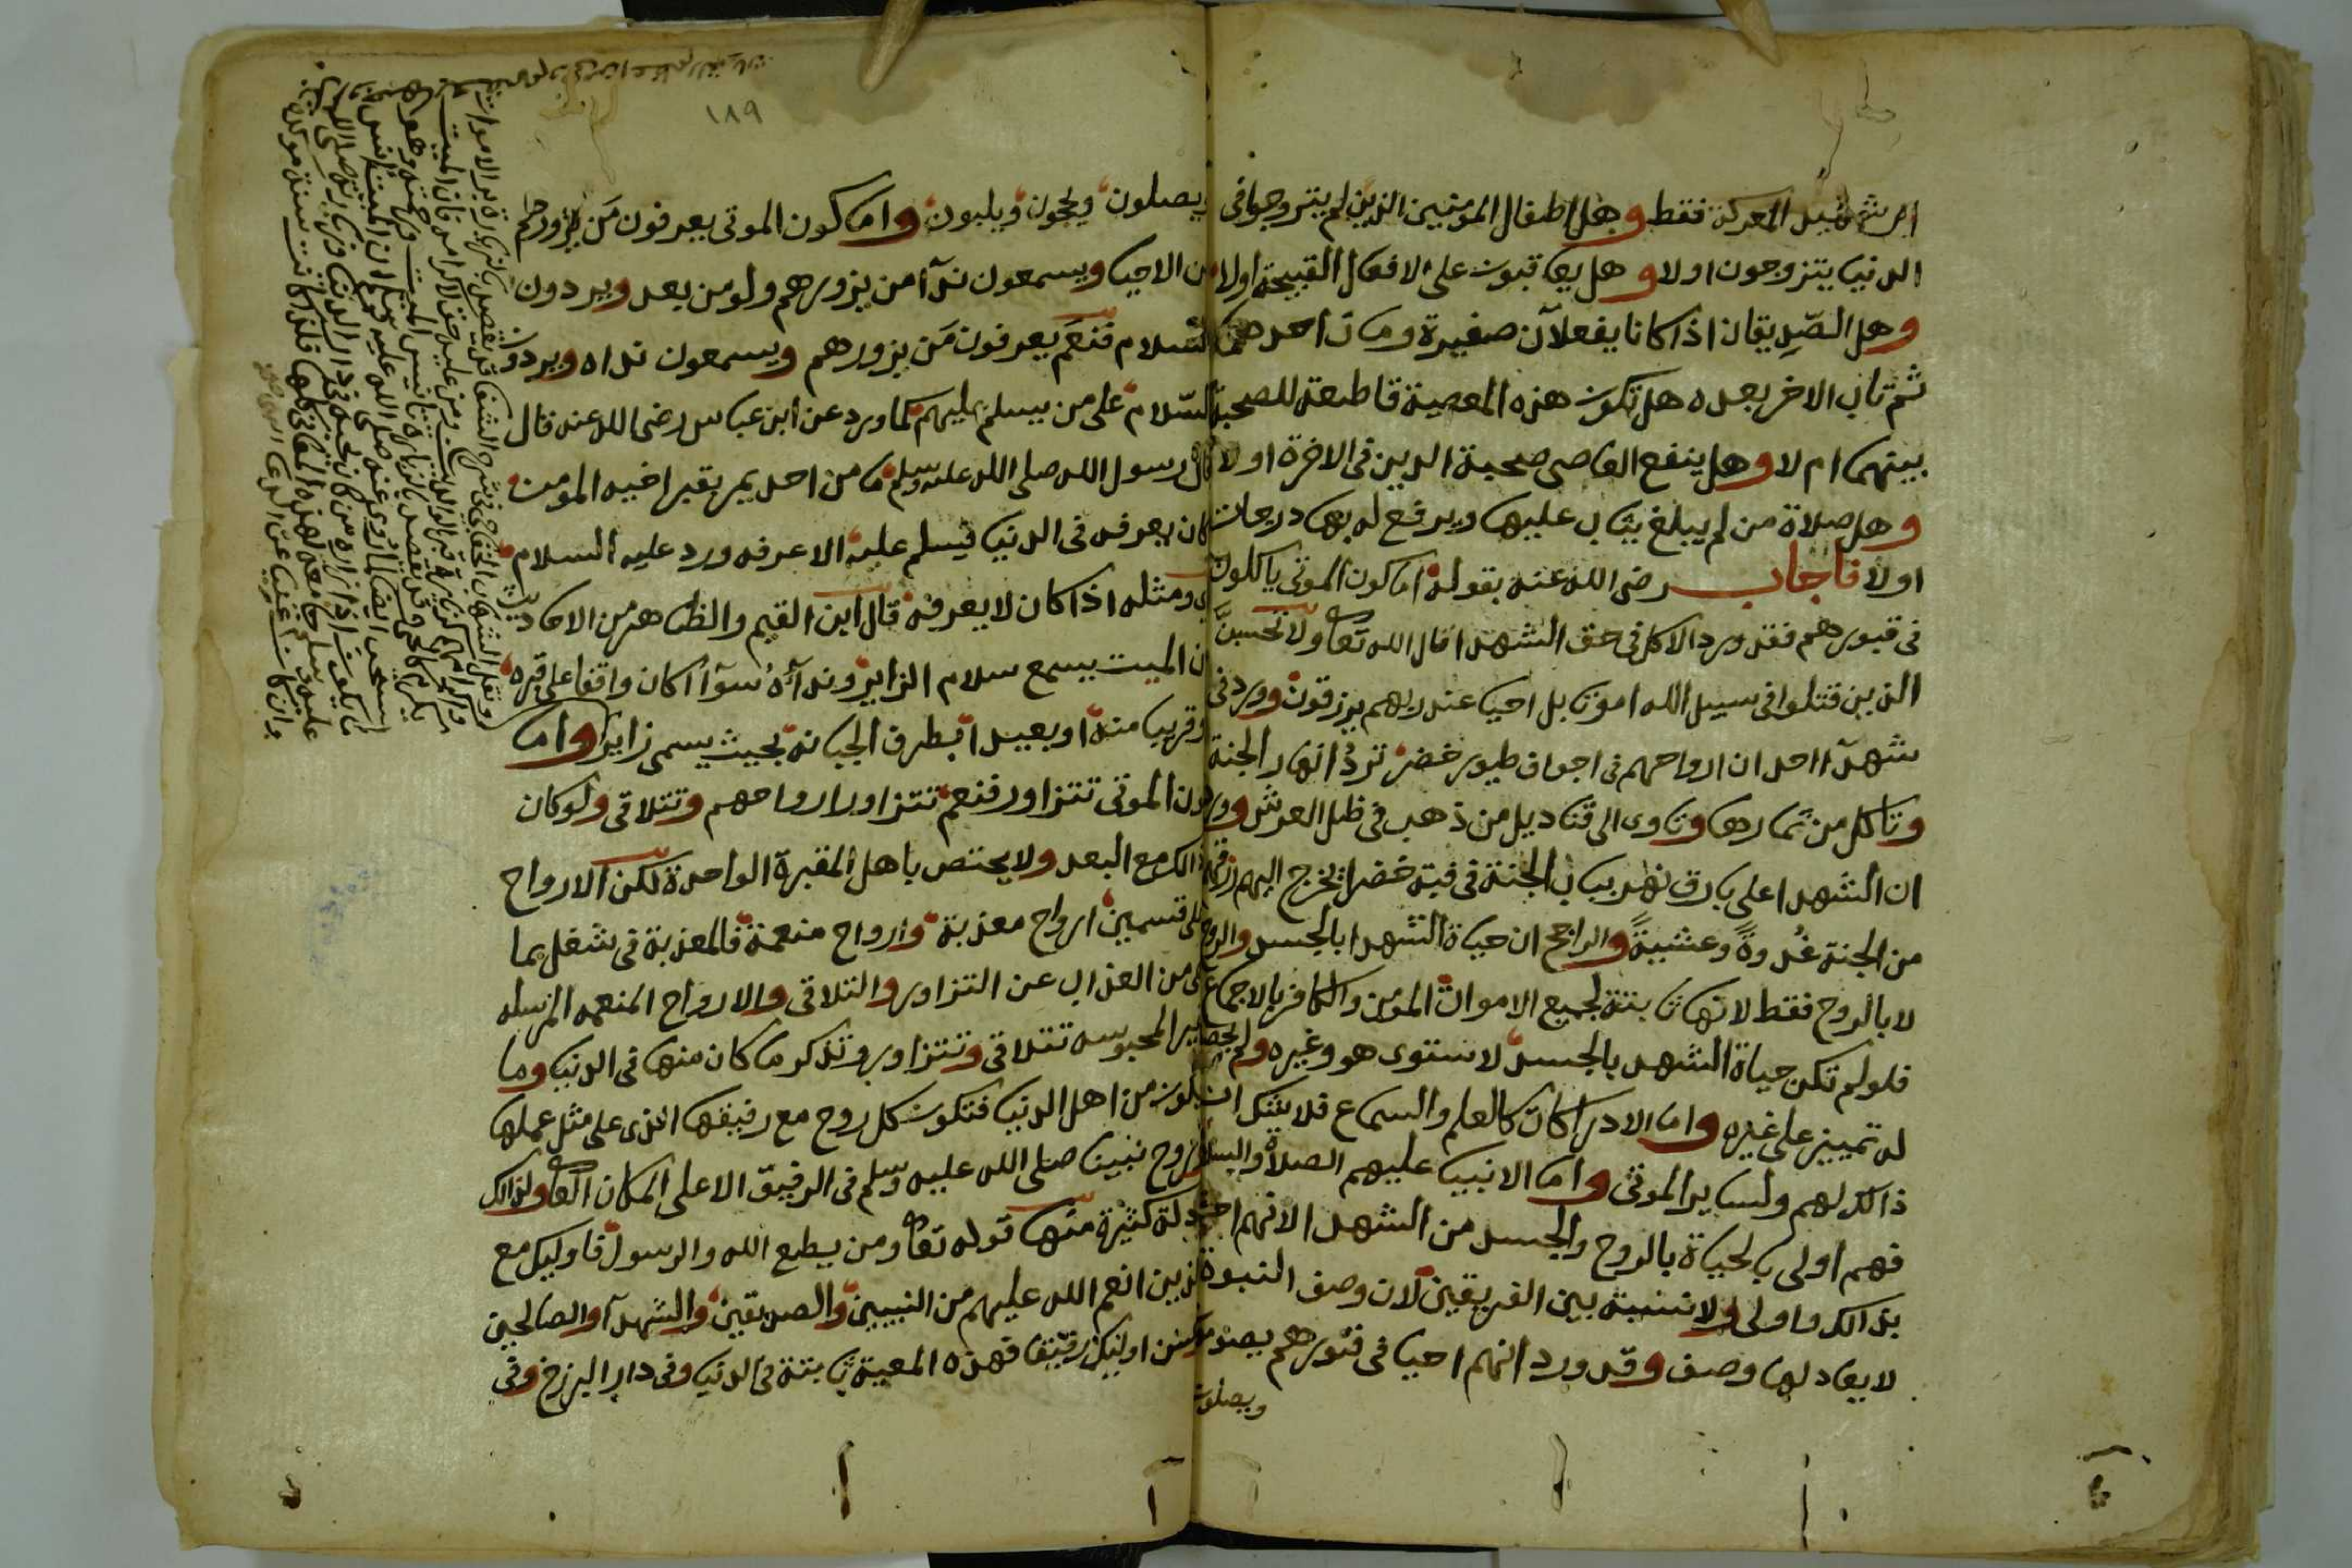 ام شهيد المعركة فقط وهل اطفال المومنين الذين لم يتزوجوا في
الدنيا يتزوجون اولا وهل يعاقبون على الافعال القبيحة اولا
وهل الصديقان اذا كانا يفعلان صغيرة ومات احدهما
ثم تاب الاخر بعده هل تكون هذه المعصية قاطعة للصحبة
بينهما ام لا وهل ينفع العاصي صحبة الدين في الاخرة اولا
وهل صلاة من لم يبلغ يثاب عليها ويرفع له بها درجات
اولا فاجاب رضى الله عنه بقوله اما كون الموتى ياكلون
في قبورهم فقد ورد الاكل في حق الشهدا قال الله تعا ولا تحسبن
الذين قتلوا في سبيل الله امواتا بل احيا عند ربهم يرزقون وورد في
شهدآ احد ان ارواحهم في اجواف طيور خضر ترد انهار الجنة
وتاكل من ثمارها وتاوى الى قناديل من ذهب في ظل العرش وورد
ان الشهدا على بارق نهر بباب الجنة في قبة خضرا يخرج اليهم رزقهم
من الجنة غدوة وعشية والراجح ان حياة الشهدا بالجسد والروح
لا بالروح فقط لانها ثابتة لجميع الاموات المومن والكافر بالاجماع
فلو لم تكن حياة الشهيد بالجسد لاستوى هو وغيره ولم يحصل
له تمييز على غيره واما الادراكات كالعلم والسماع فلا شك ان
ذالك لهم ولساير الموتى واما الانبيا عليهم الصلاة والسلام
فهم اولى بالحياة بالروح والجسد من الشهدا لانهم احق
بذالك واولى ولا نسبة بين الفريقين لان وصف النبوة
لا يعادلها وصف وقد ورد انهم احيا في قبورهم يصلون
ويصلون
١٨٩
يصلون ويحجون ويلبون واما كون الموتى يعرفون من يزورهم
من الاحيا ويسمعون ندآ من يزورهم ولو من بعد ويردون
السلام فنعم يعرفون من يزورهم ويسمعون نداه ويردون
السلام على من يسلم عليهم كما ورد عن ابن عباس رضى الله عنه قال
قال رسول الله صلى الله عليه وسلم ما من احد يمر بقبر اخيه المومن
كان يعرفه في الدنيا فيسلم عليه الا عرفه ورد عليه السلام
ومثله اذا كان لا يعرفه قال ابن القيم والظاهر من الاحاديث
ان الميت يسمع سلام الزاير وندآه سوآ اكان واقفا على قبره
او قريبا منه او بعيدا بطرف الجبانة بحيث يسمى زايرا واما
كون الموتى تتزاور فنعم تتزاور ارواحهم وتتلاقى ولو كان
ذالك مع البعد ولا يختص باهل المقبرة الواحدة لكن الارواح
على قسمين ارواح معذبة وارواح منعمة فالمعذبة في شغل بما
هي من العذاب عن التزاور والتلاقى والارواح المنعمه المرسله
غير المحبوسه تتلاقى وتتزاور وتذكر ما كان منها في الدنيا وما
يكون من اهل الدنيا فتكون كل روح مع رفيقها الذى على مثل عملها
وروح نبينا صلى الله عليه وسلم في الرفيق الاعلى المكان ولذالك
ادلة كثيرة منها قوله تعا ومن يطع الله والرسول فاوليك مع
الذين انعم الله عليهم من النبيين والصديقين والشهدآ والصالحين
وحسن اوليك رفيقا فهذه المعية ثابتة في الدنيا وفي دار البرزخ وفي